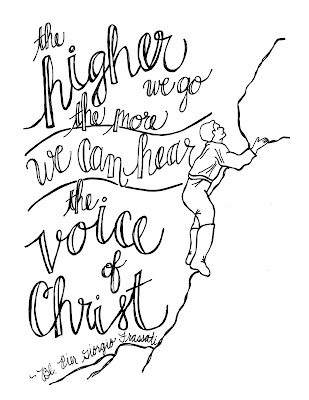 the
higher
we go
the more
we can hear
the
voice
of
Christ
~Bl. Pier Giorgio Frassati